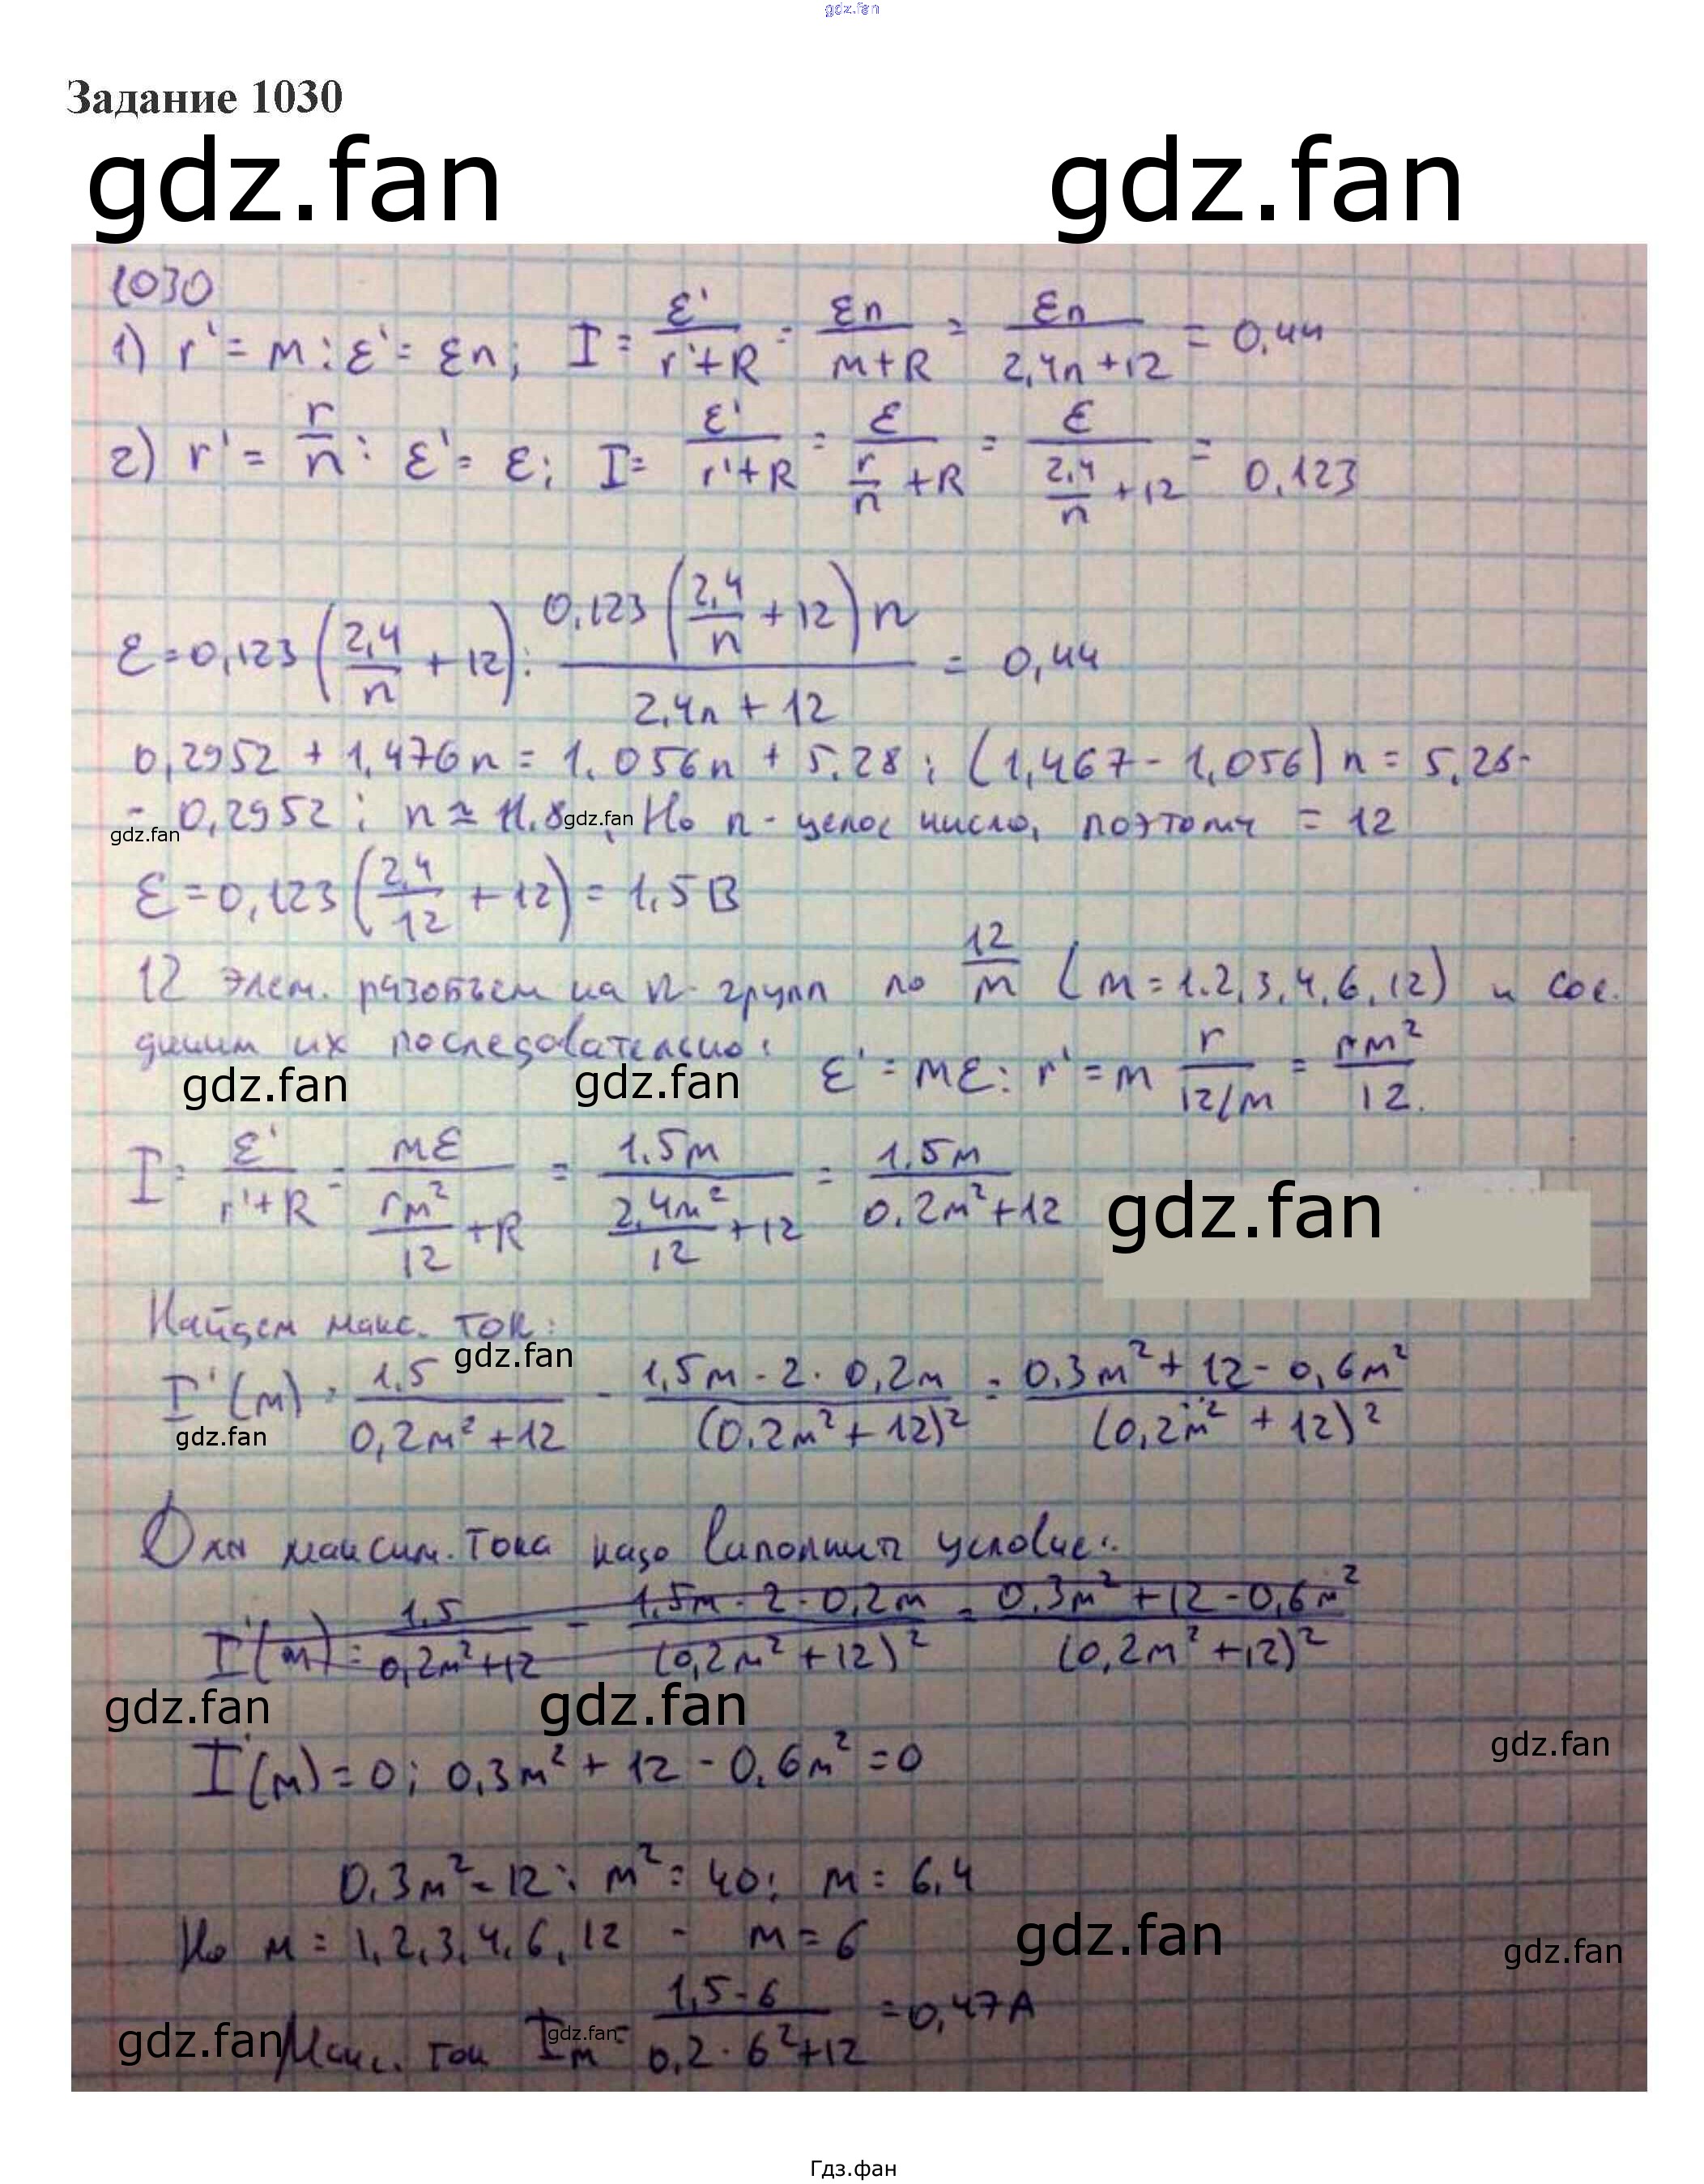 gdz.fan
Задание 1030
gdz.fan gdz.fan
1030
1) r' = m; ε' = εn; I = ε'/(r'+R) = εn/(m+R) = εn/(2,4n+12) = 0,44
2) r' = r/n; ε' = ε; I = ε'/(r'+R) = ε/(r/n+R) = ε/(2,4/n+12) = 0,123
ε = 0,123(2,4/n + 12); 0,123(2,4/n + 12)n/(2,4n + 12) = 0,44
0,2952 + 1,476n = 1,056n + 5,28; (1,467 - 1,056)n = 5,28-
- 0,2952; n ≈ 11,8 gdz.fan. Но n - целое число, поэтому = 12
gdz.fan
ε = 0,123(2,4/12 + 12) = 1,5 В
12 элем. разобьем на n групп по 12/m (m = 1,2,3,4,6,12) и сое-
диним их последовательно: ε' = mε; r' = m r/(12/m) = rm²/12.
gdz.fan gdz.fan
I = ε'/(r'+R) = mε/(rm²/12 + R) = 1,5m/(2,4m²/12 + 12) = 1,5m/(0,2m²+12)
gdz.fan
Найдем макс. ток:
gdz.fan
I'(m) = 1,5/(0,2m²+12) - 1,5m·2·0,2m/(0,2m²+12)² = 0,3m² + 12 - 0,6m²/(0,2m² + 12)²
gdz.fan
Для максим. тока надо выполнить условие:
I'(m) = 1,5/(0,2m²+12) - 1,5m·2·0,2m/(0,2m²+12)² = 0,3m² + 12 - 0,6m²/(0,2m²+12)²
gdz.fan gdz.fan
gdz.fan
I'(m) = 0; 0,3m² + 12 - 0,6m² = 0
0,3m² = 12; m² = 40; m = 6,4
Но m = 1,2,3,4,6,12 - m = 6
gdz.fan gdz.fan
Макс. ток Iм = 1,5·6/(0,2·6²+12) = 0,47А
gdz.fan gdz.fan
Гдз.фан